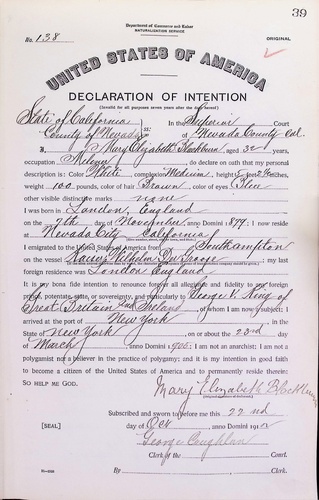 39
Department of Commerce and Labor
NATURALIZATION SERVICE
No. 138
ORIGINAL
UNITED STATES OF AMERICA
DECLARATION OF INTENTION
(Invalid for all purposes seven years after the date hereof)
State of California
County of Nevada
ss:
In the Superior Court
of Nevada County Cal.
I, Mary Elizabeth, aged 32 years,
occupation, do declare on oath that my personal
description is: Color White, complexion Medium, height 5 feet inches,
weight 100 pounds, color of hair Brown, color of eyes Blue
other visible distinctive marks none
I was born in London, England
on the 7th day of November, anno Domini 1879; I now reside
at Nevada City, California
I emigrated to the United States of America from Southampton
on the vessel Kaiser Wilhelm; my last
foreign residence was London England
It is my bona fide intention to renounce forever all allegiance and fidelity to any foreign
prince, potentate, state, or sovereignty, and particularly to George V. King of
Great Britain and Ireland, of whom I am now a subject; I
arrived at the port of New York, in the
State of New York, on or about the 23rd day
of March, anno Domini; I am not an anarchist; I am not a
polygamist nor a believer in the practice of polygamy; and it is my intention in good faith
to become a citizen of the United States of America and to permanently reside therein:
SO HELP ME GOD.
Mary Elizabeth
Subscribed and sworn to before me this 22nd
[SEAL]
day of Oct, anno Domini 191
George Coughlan
Clerk of the Court.
By, Clerk.